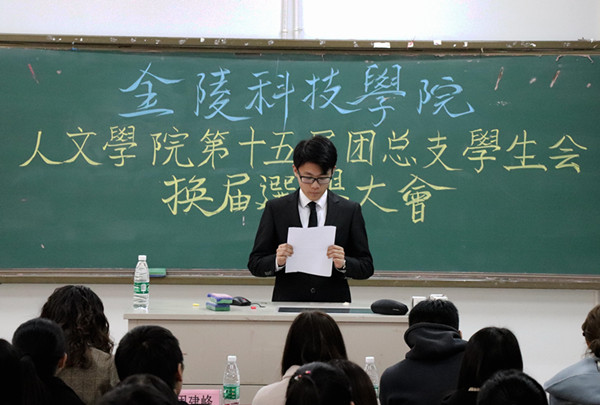 金陵科技學院
人文學院第十五届团总支學生会
换届選舉大會
建峰